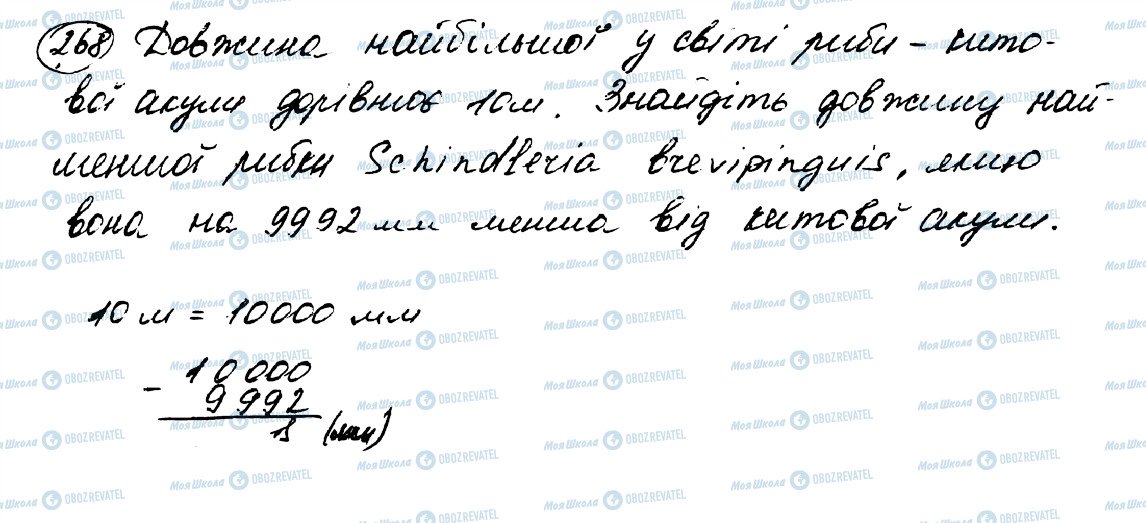 268 Довжина найбільшої у світі риби – кито-
вої акули дорівнює 10 м. Знайдіть довжину най-
меншої рибки Schindleria brevipinguis, якщо
вона на 9992 мм менша від китової акули.
10 м = 10000 мм
- 10000
9992
8 (мм)